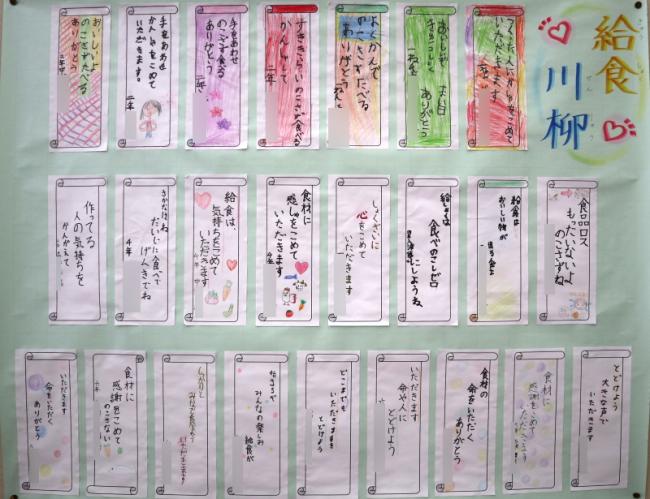 給食
川柳
つくった人にかんしゃをこめて
いただきます
おいしい
ありがとう
よくかんで
のこさずたべる
ありがとう
すききらい のこさず食べる
かんしゃして
二年
手をあわせ
のこさず食べる
ありがとう
手をあわせ
かんしゃをこめて
いただきます。
二年
おいしいよ
のこさずたべる
ありがとう
食品ロス
もったいないよ
のこさずね
給食は
おいしい物が
給しょくは
食べのこしゼロ
にしようね
しょくざいに
心をこめて
いただきます
食材に
感しゃをこめて
いただきます
給食は、
気持ちをこめて
いただきます
さかなはね
だいじに食べて
げんきでね
4年
作ってる
人の気持ちを
かんがえて
とどけよう
大きな声で
いただきます
食材に
感謝をこめて
いただこう
食材の
命をいただく
ありがとう
いただきます
命や人に
とどけよう
どこまでも
いただきますを
とどけよう
みんなの楽しみ
給食が
食材に
感謝をこめて
のこさない
いただきます
命をいただく
ありがとう